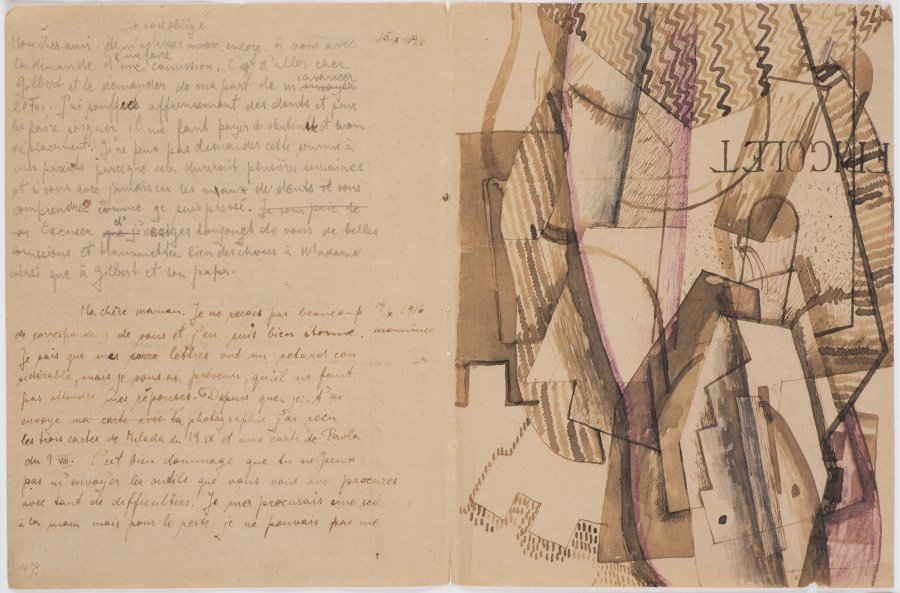 me voir obligé
Mon cher ami. de m'adresser encore à vous avec 15 X 1916
la demande d'une comission. C'est d'aller chez
Gilbert et le demander de ma part de m'avancer
20 Frs. J'ai souffres affreusement des dents et pour
les faire soigner il me faut payer le dentiste et mon
deplacement. Je ne peux pas demander cette somme à
mes parents parceque cela durerait plusières semaines
et si vous avec jamais eu les meaux de dents vous
comprendrez comme je suis pressé. Je vous prie de
Excuser d'exiger toujours de vous de telles
comissions et transmettez bien des choses à Madame
ainsi que à Gilbert et son papa.
Ma chère maman. Je ne recois pas beaucoup 19 X 1916
de correspondence de vous et j'en suis bien etonné.
Je sais que mes lettres ont un retard con-
sidérable, mais je vous ai prevenu, qu'il ne faut
pas attendre mes réponses. Depuis que j'ai
envoyé ma carte avec la photographie j'ai reçu
les trois cartes de Milada du 19 IX et une carte de Pavla
du 9 VIII. C'est bien dommage que tu ne peux
pas m'envoyer les outils que vous vais avec procurés
avec tant de difficultées. Je me procurais une scie
à la main mais pour le reste je ne pouvais pas me
47.